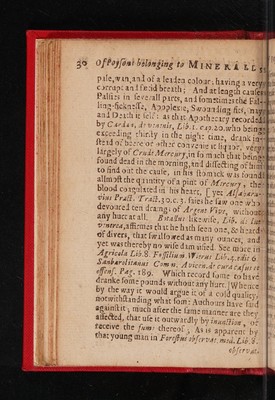 30 Of Poysons belonging to MINERALL
pale, wan, and of a leaden colour; having a very
corrupt and fetid breath; And at length causes
Palsies in severall parts, and sometimes the Fal-
ling-sicknesse, Apoplexie, Swounding fits, may
and Death it self: as that Apothecary recorded
by Cardan, de venenis, Lib. 1. cap. 20. who being
exceeding thirsty in the night time, drank in
stead of beere or other convenient liquor, very
largely of Crude Mercury, in so much that being
found dead in the morning, and dissecting of him
to find out the cause, in his stomack was found
allmost the quantity of a pint of Mercury, the
blood coagulated in his heart, [yet
vius Pract. Tract. 30. c. 3. saies he saw one who
devoured ten drams of Argent Vive, without
any hurt at all. Erastus likewise, Lib. de
venena, affirmes that he hath seen one, & heard
of divers, that swallowed as many ounces, and
yet was thereby no wise damnified. See more in
Agricola Lib. 8. Fossilium Wierus Lib. 4. edit 6.
Sanbarolitanus Com. n. Avicen. de cura casus et
offens. Pag. 189. Which record some to have
dranke some pounds without any hurt. [Whence
by the way it would argue it of a cold quality,
notwithstanding what some Authours have said
against it; much after the same manner are they
affected, that use it outwardly by inunction, or
receive the fume thereof; As is apparent by
that young man in Forestus observat. med. Lib. 8.
observat.